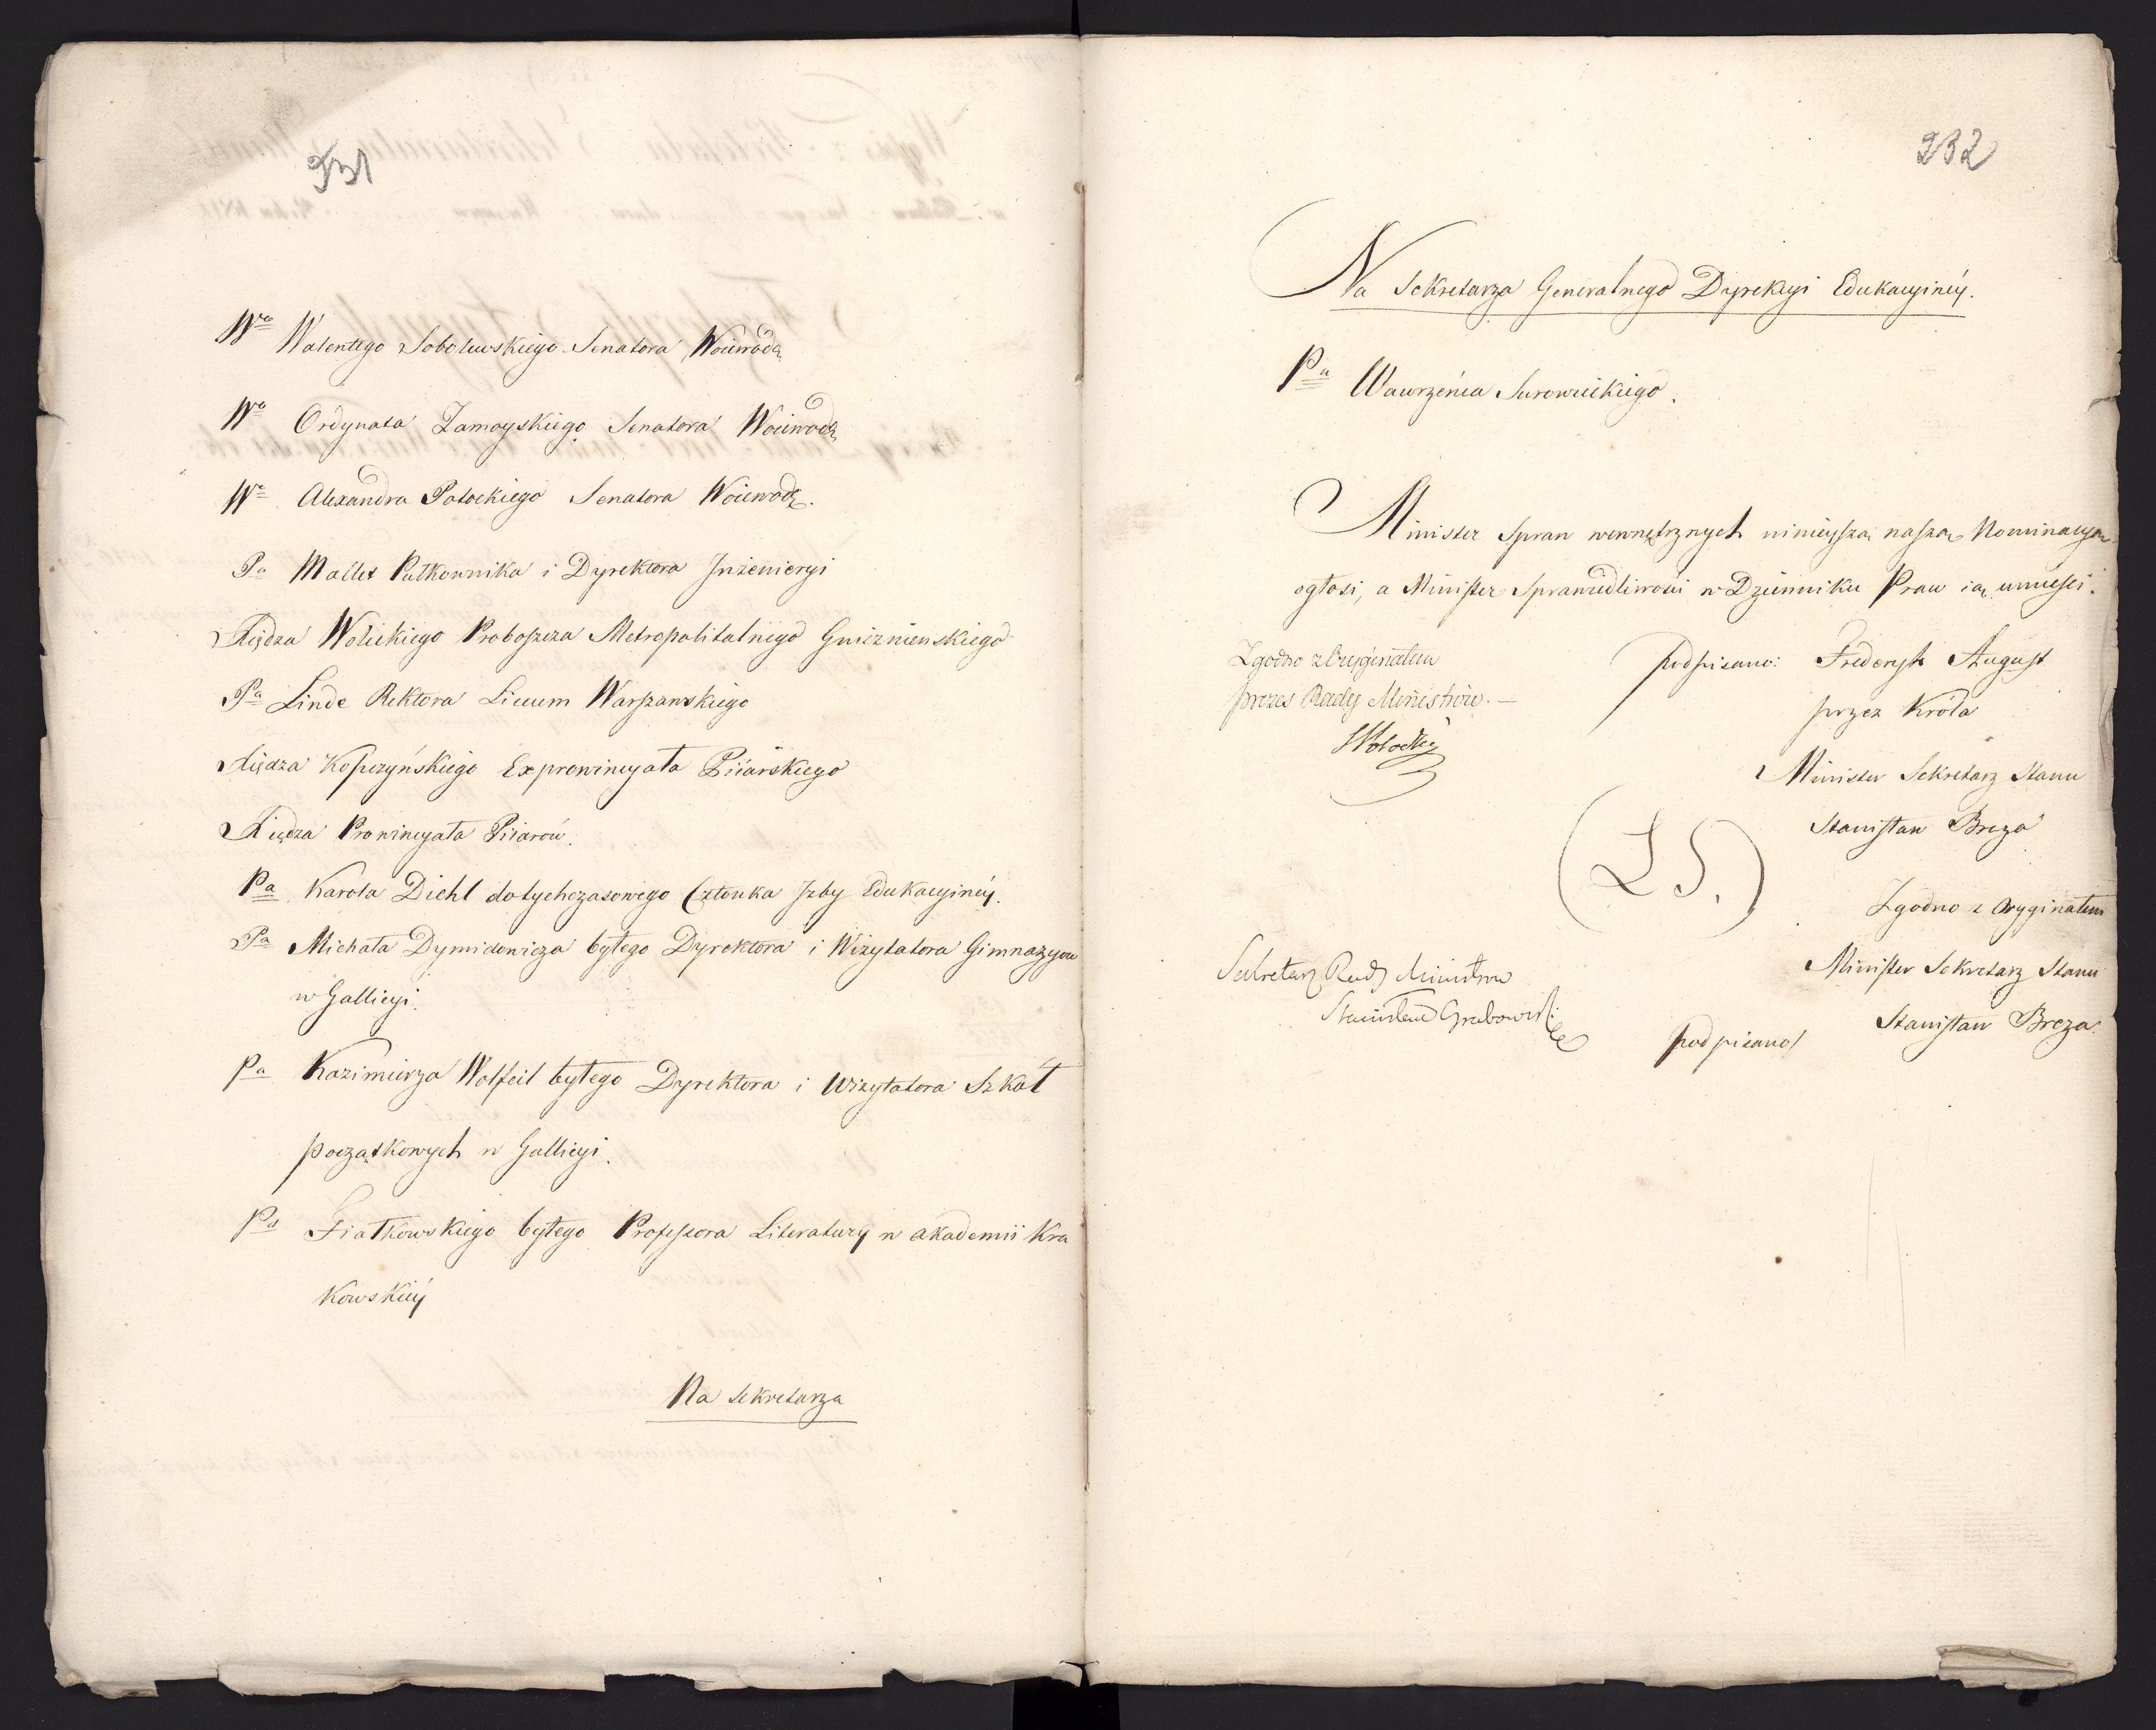 231
Wo Walentego Sobolewskiego Senatora Woiewodę
Wo Ordynata Zamoyskiego Senatora Woiewodę
Wo Alexandra Potockiego Senatora Woiewodę.
Pa Mallet Pułkownika i Dyrektora Jnżenieryi
Xiędza Wolickiego Proboszcza Metropolitalnego Gnieznienskiego
Pa Linde Rektora Liceum Warszawskiego
Xiędza Kopczyńskiego Exprowincyała Piiarskiego
Xiędza Prowincyała Piiarów.
Pa Karola Diehl dotychczasowego Członka Jzby Edukacyiney.
Pa Michała Dymidowicza byłego Dyrektora i Wizytatora Gimnazyow
w Gallicyi.
Pa Kazimierza Wolfeil byłego Dyrektora i Wizytatora Szkół
początkowych w Gallicyi.
Pa Fiałkowskiego byłego Professora Literatury w akademii Kra
kowskiey
Na Sekretarza
232
Na Sekretarza Generalnego Dyrekcyi Edukacyiney.
Pa Wawrzeńca Surowieckiego.
Minister Spraw wewnętrznych ninieyszą naszą Nominacyą
ogłosi, a Minister Sprawiedliwości w Dzienniku Praw ią umieści.
Zgodno z Oryginałem
prezes Rady Ministrów. —
podpisano: Frederyk August
przez Króla
Minister Sekretarz Stanu
Stanisław Breza
(L S.)
Zgodno z Oryginałem
Minister Sekretarz Stanu
podpisano/ Stanisław Breza.
Sekretarz Rady Ministrów
Stanisław Grabowski